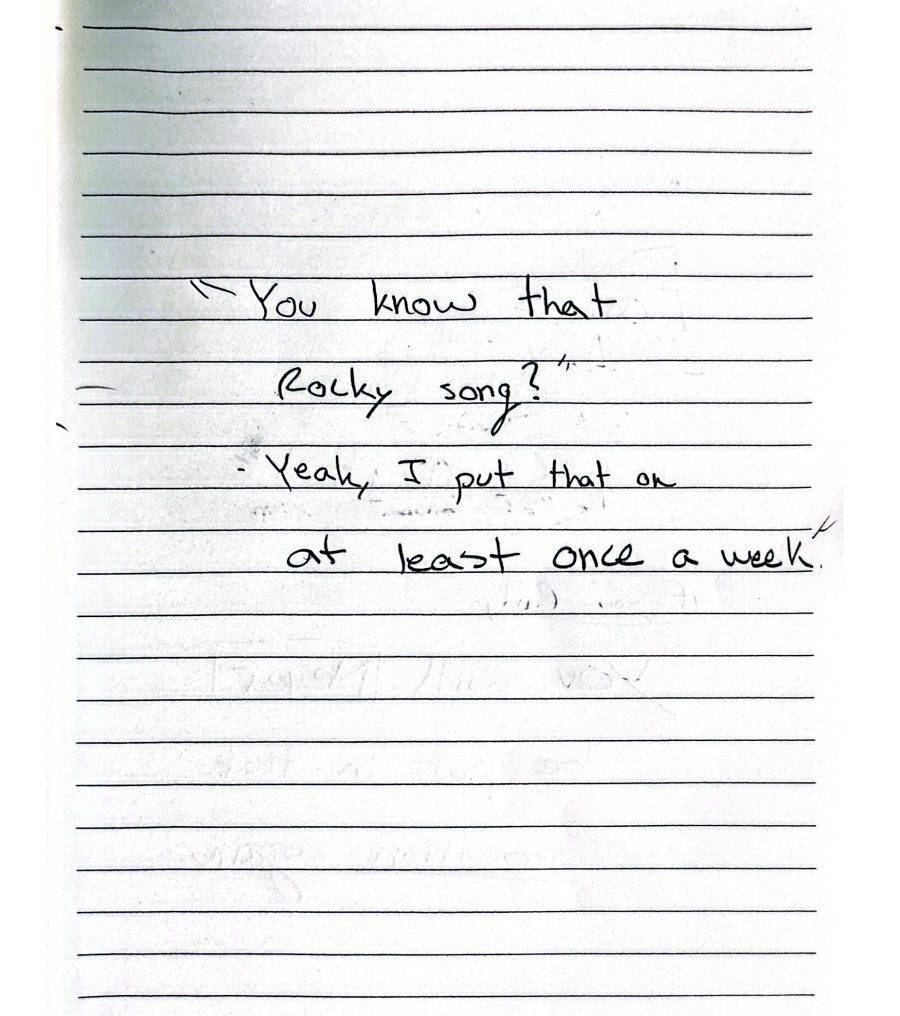 "You know that
Rocky song?"
- Yeah, I put that on
at least once a week."